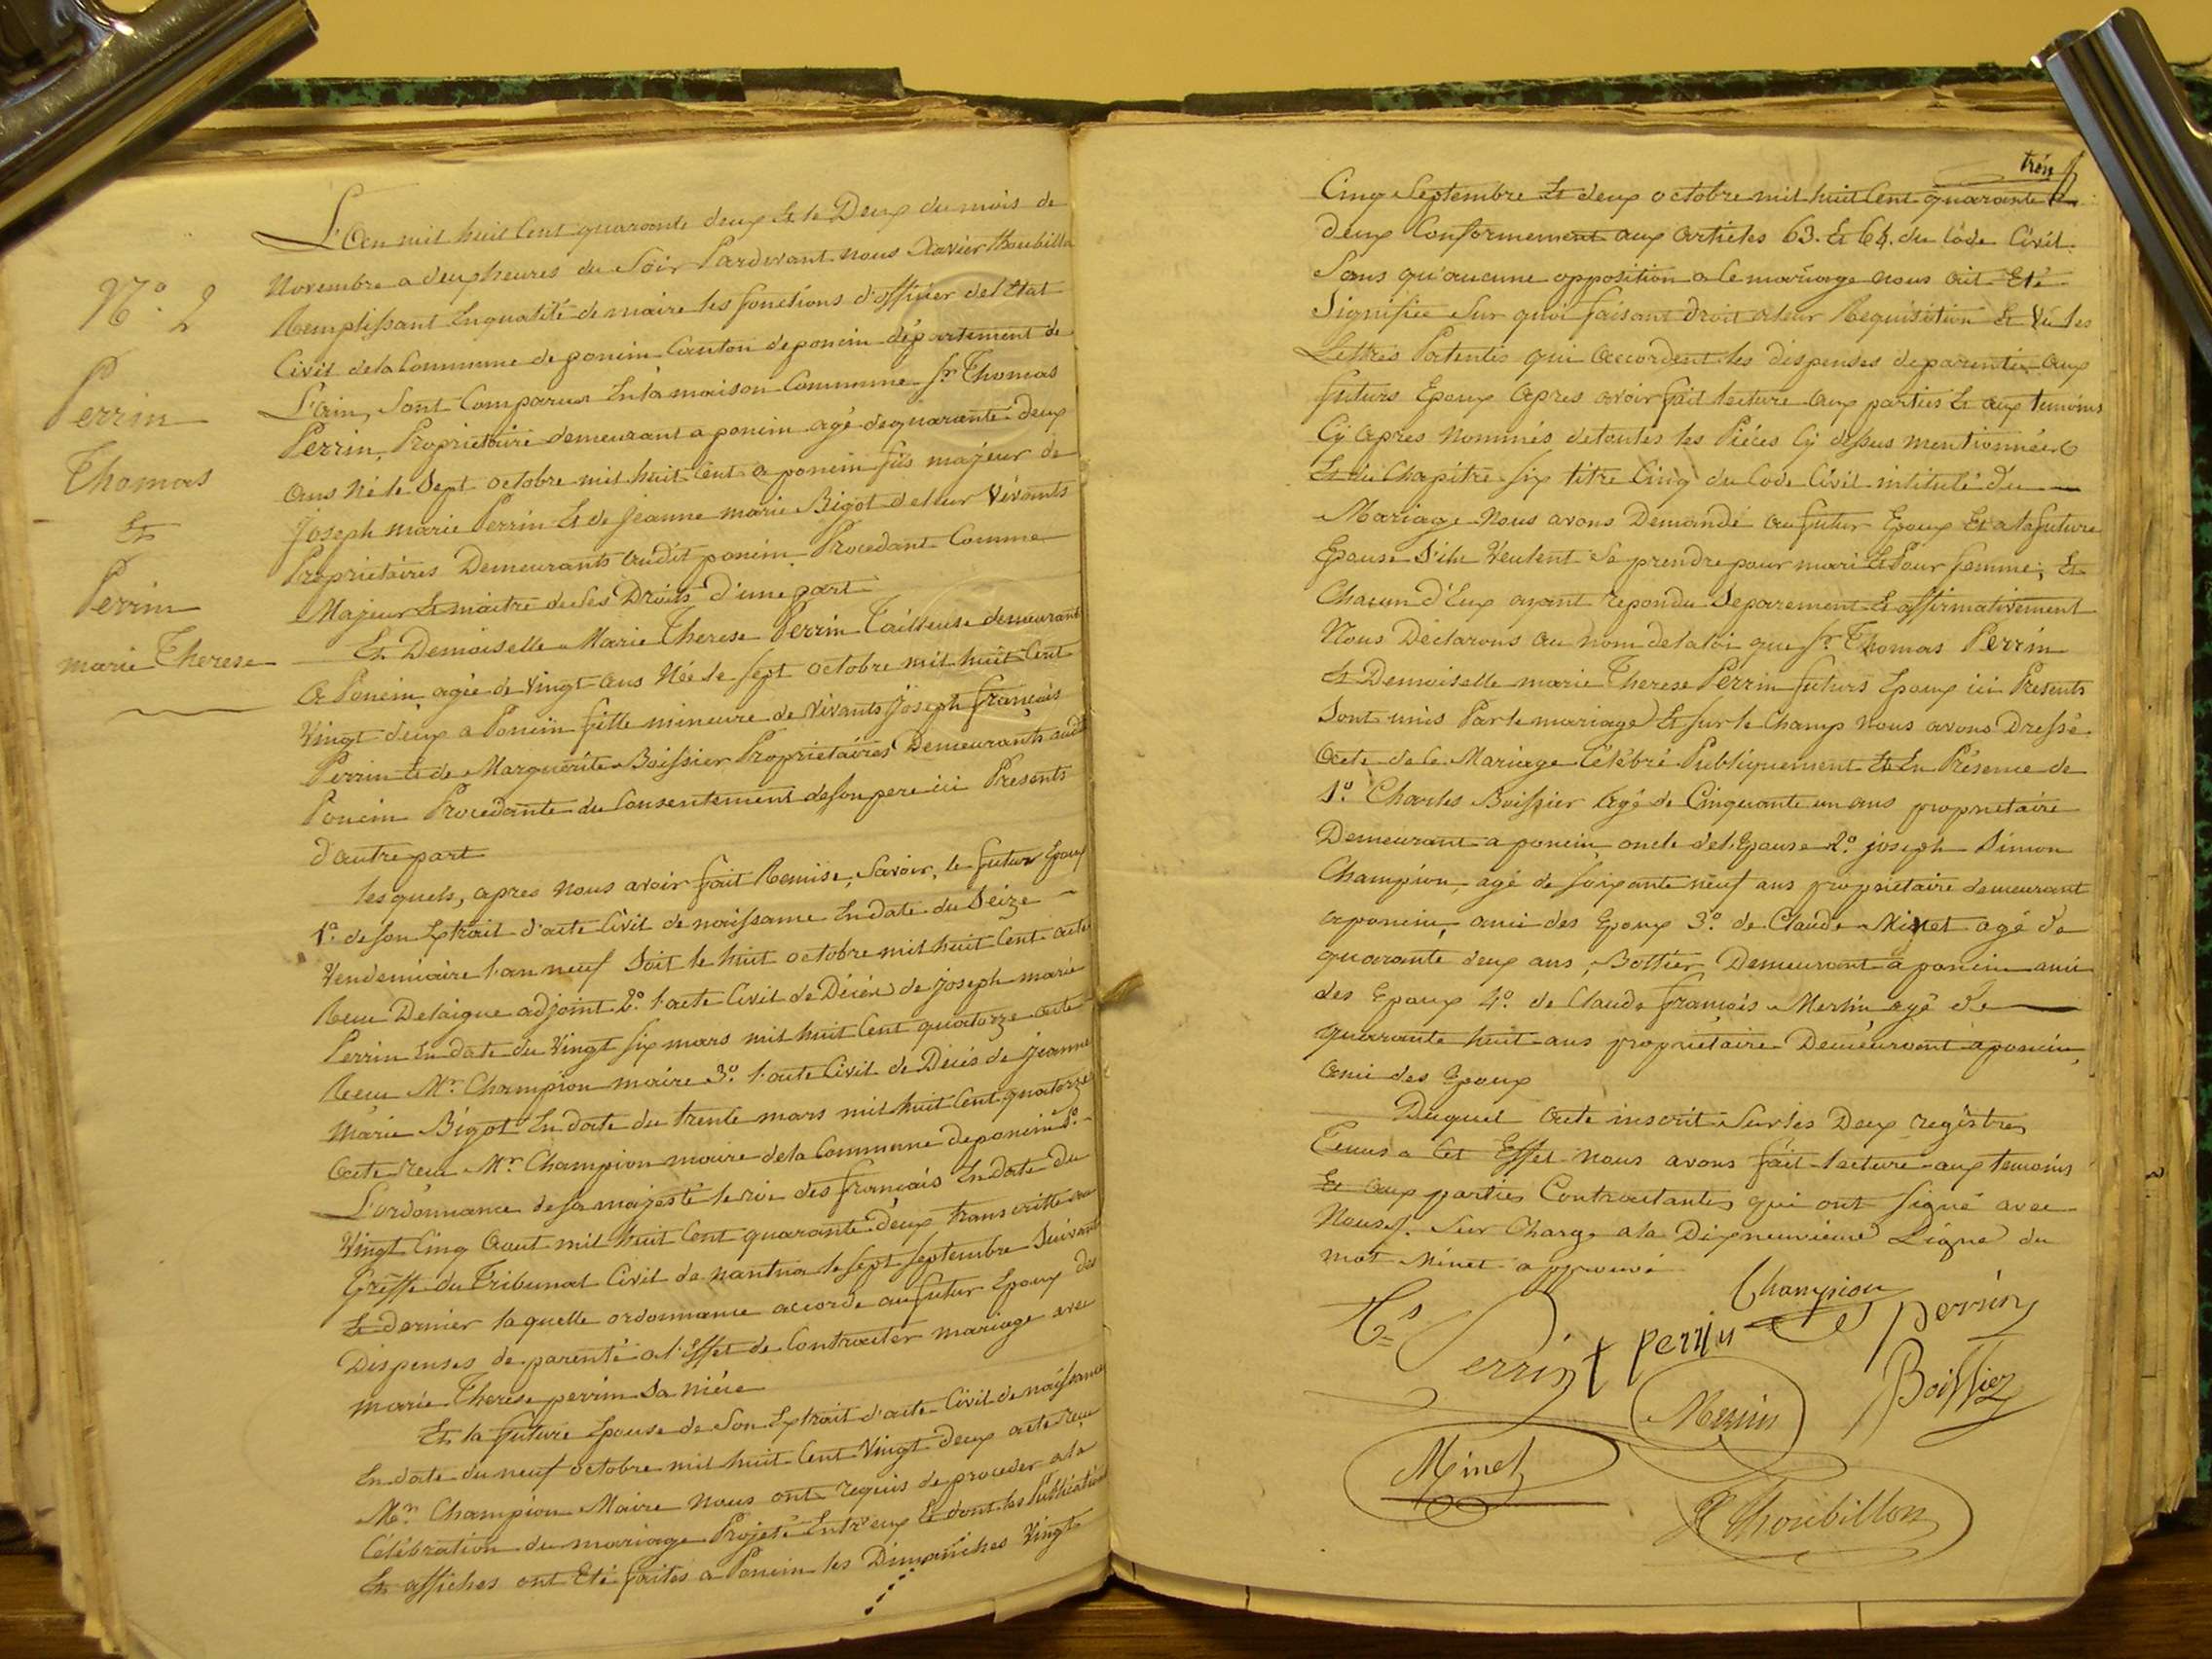 N.º 2
Perrin
Thomas
Et
Perrin
marie Therese
L'An mil huit Cent quarante deux Et le Deux du mois de
Novembre a deux heures du Soir Pardevant nous Xavier Thoubillon
Remplissant En qualité de maire les fonctions d'officier de l'Etat
Civil de la Commune de poncin Canton de poncin département de
L'ain, Sont Comparus En la maison Commune Sr. Thomas
Perrin, Proprietaire demeurant a poncin agé de quarante deux
ans né le Sept octobre mil huit Cent a poncin fils majeur de
Joseph marie Perrin Et de Jeanne marie Bigot de leur Vivants
Proprietaires Demeurants audit poncin Procedant Comme
Majeur Et maitre de Ses Droits d'une part
Et Demoiselle Marie Therese Perrin Tailleuse demeurant
a Poncin, agée de Vingt ans Née le Sept octobre mil huit Cent
Vingt deux a Poncin fille mineure de Vivants Joseph françois
Perrin Et de Marguerite Boissier Proprietaires Demeurants audit
Poncin Procedante du Consentement de son pere ici Presents
d'autre part
lesquels, apres nous avoir fait Remise, Savoir, le futur Epoux
1º. de son Extrait d'acte Civil de naissance En date du Seize
Vendemiaire l'an neuf Soit le huit octobre mil huit Cent acte
Recu Delaigue adjoint 2º. l'acte Civil de Décès de joseph marie
Perrin En date du Vingt six mars mil huit Cent quatorze acte
Recu Mr. Champion maire 3º. l'acte Civil de Décès de jeanne
Marie Bigot En date du trente mars mil huit Cent quatorze
acte recu Mr. Champion maire de la Commune de poncin 4º.
L'ordonnance de sa majesté le roi des français En date du
Vingt Cinq Aout mil huit Cent quarante deux transcritte au
Greffe du Tribunal Civil de nantua le sept septembre Suivant
Et dernier laquelle ordonnance accorde au futur Epoux des
Dispenses de parenté a l'Effet de Contracter mariage avec
marie Therese perrin Sa niéce
Et la future Epouse de Son Extrait d'acte Civil de naissance
En date du neuf octobre mil huit Cent Vingt deux acte recu
Mr. Champion Maire nous ont requis de proceder a la
Célébration du mariage Projeté Entr'eux Et dont les Publications
Et affiches ont Eté faites a Poncin les Dimanches Vingt
trois
Cinq Septembre Et deux octobre mil huit Cent quarante
deux Conformement aux articles 63. Et 64. du Code Civil
Sans qu'aucune opposition a ce mariage nous ait Eté
Signifiée Sur quoi faisant droit a leur Requisition Et Vu les
Lettres Patentes qui accordent les dispenses de parentée aux
futurs Epoux apres avoir fait lecture aux parties Et aux temoins
Cy apres nommés de toutes les Piéces Cy dessus mentionnées
Et du Chapitre six titre Cinq du Code Civil intitulé du
Mariage Nous avons Demandé au futur Epoux Et a la future
Epouse S'ils Veulent Se prendre pour mari Et Pour femme, Et
Chacun d'Eux ayant repondu Separement Et affirmativement
Nous Déclarons au nom de la loi que Sr. Thomas Perrin
Et Demoiselle marie Therese Perrin futurs Epoux ici Presents
Sont unis Par le mariage Et sur le Champ nous avons Dressé
acte de ce Mariage Célébré Publiquement Et En Présence de
1º. Charles Boissier Agé de Cinquante un ans proprietaire
Demeurant a poncin oncle de l'Epouse 2º. joseph Simon
Champion, agé de soixante neuf ans proprietaire demeurant
a poncin, ami des Epoux 3º. de Claude Minet agé de
quarante deux ans, Bottier Demeurant a poncin ami
des Epoux 4º. de Claude françois Merlin agé de
quarante huit ans proprietaire Demeurant a poncin,
ami des Epoux
Duquel acte inscrit Sur les Deux registres
Tenus a Cet Effet nous avons fait lecture aux temoins
Et aux parties Contractantes qui ont Signé avec
Nous. Sur Charge a la Dixneuvieme Ligne du
mot Minet approuvé
Champion
Perrin t perrin perrin
Boissier
Merlin
Minet
X Thoubillon